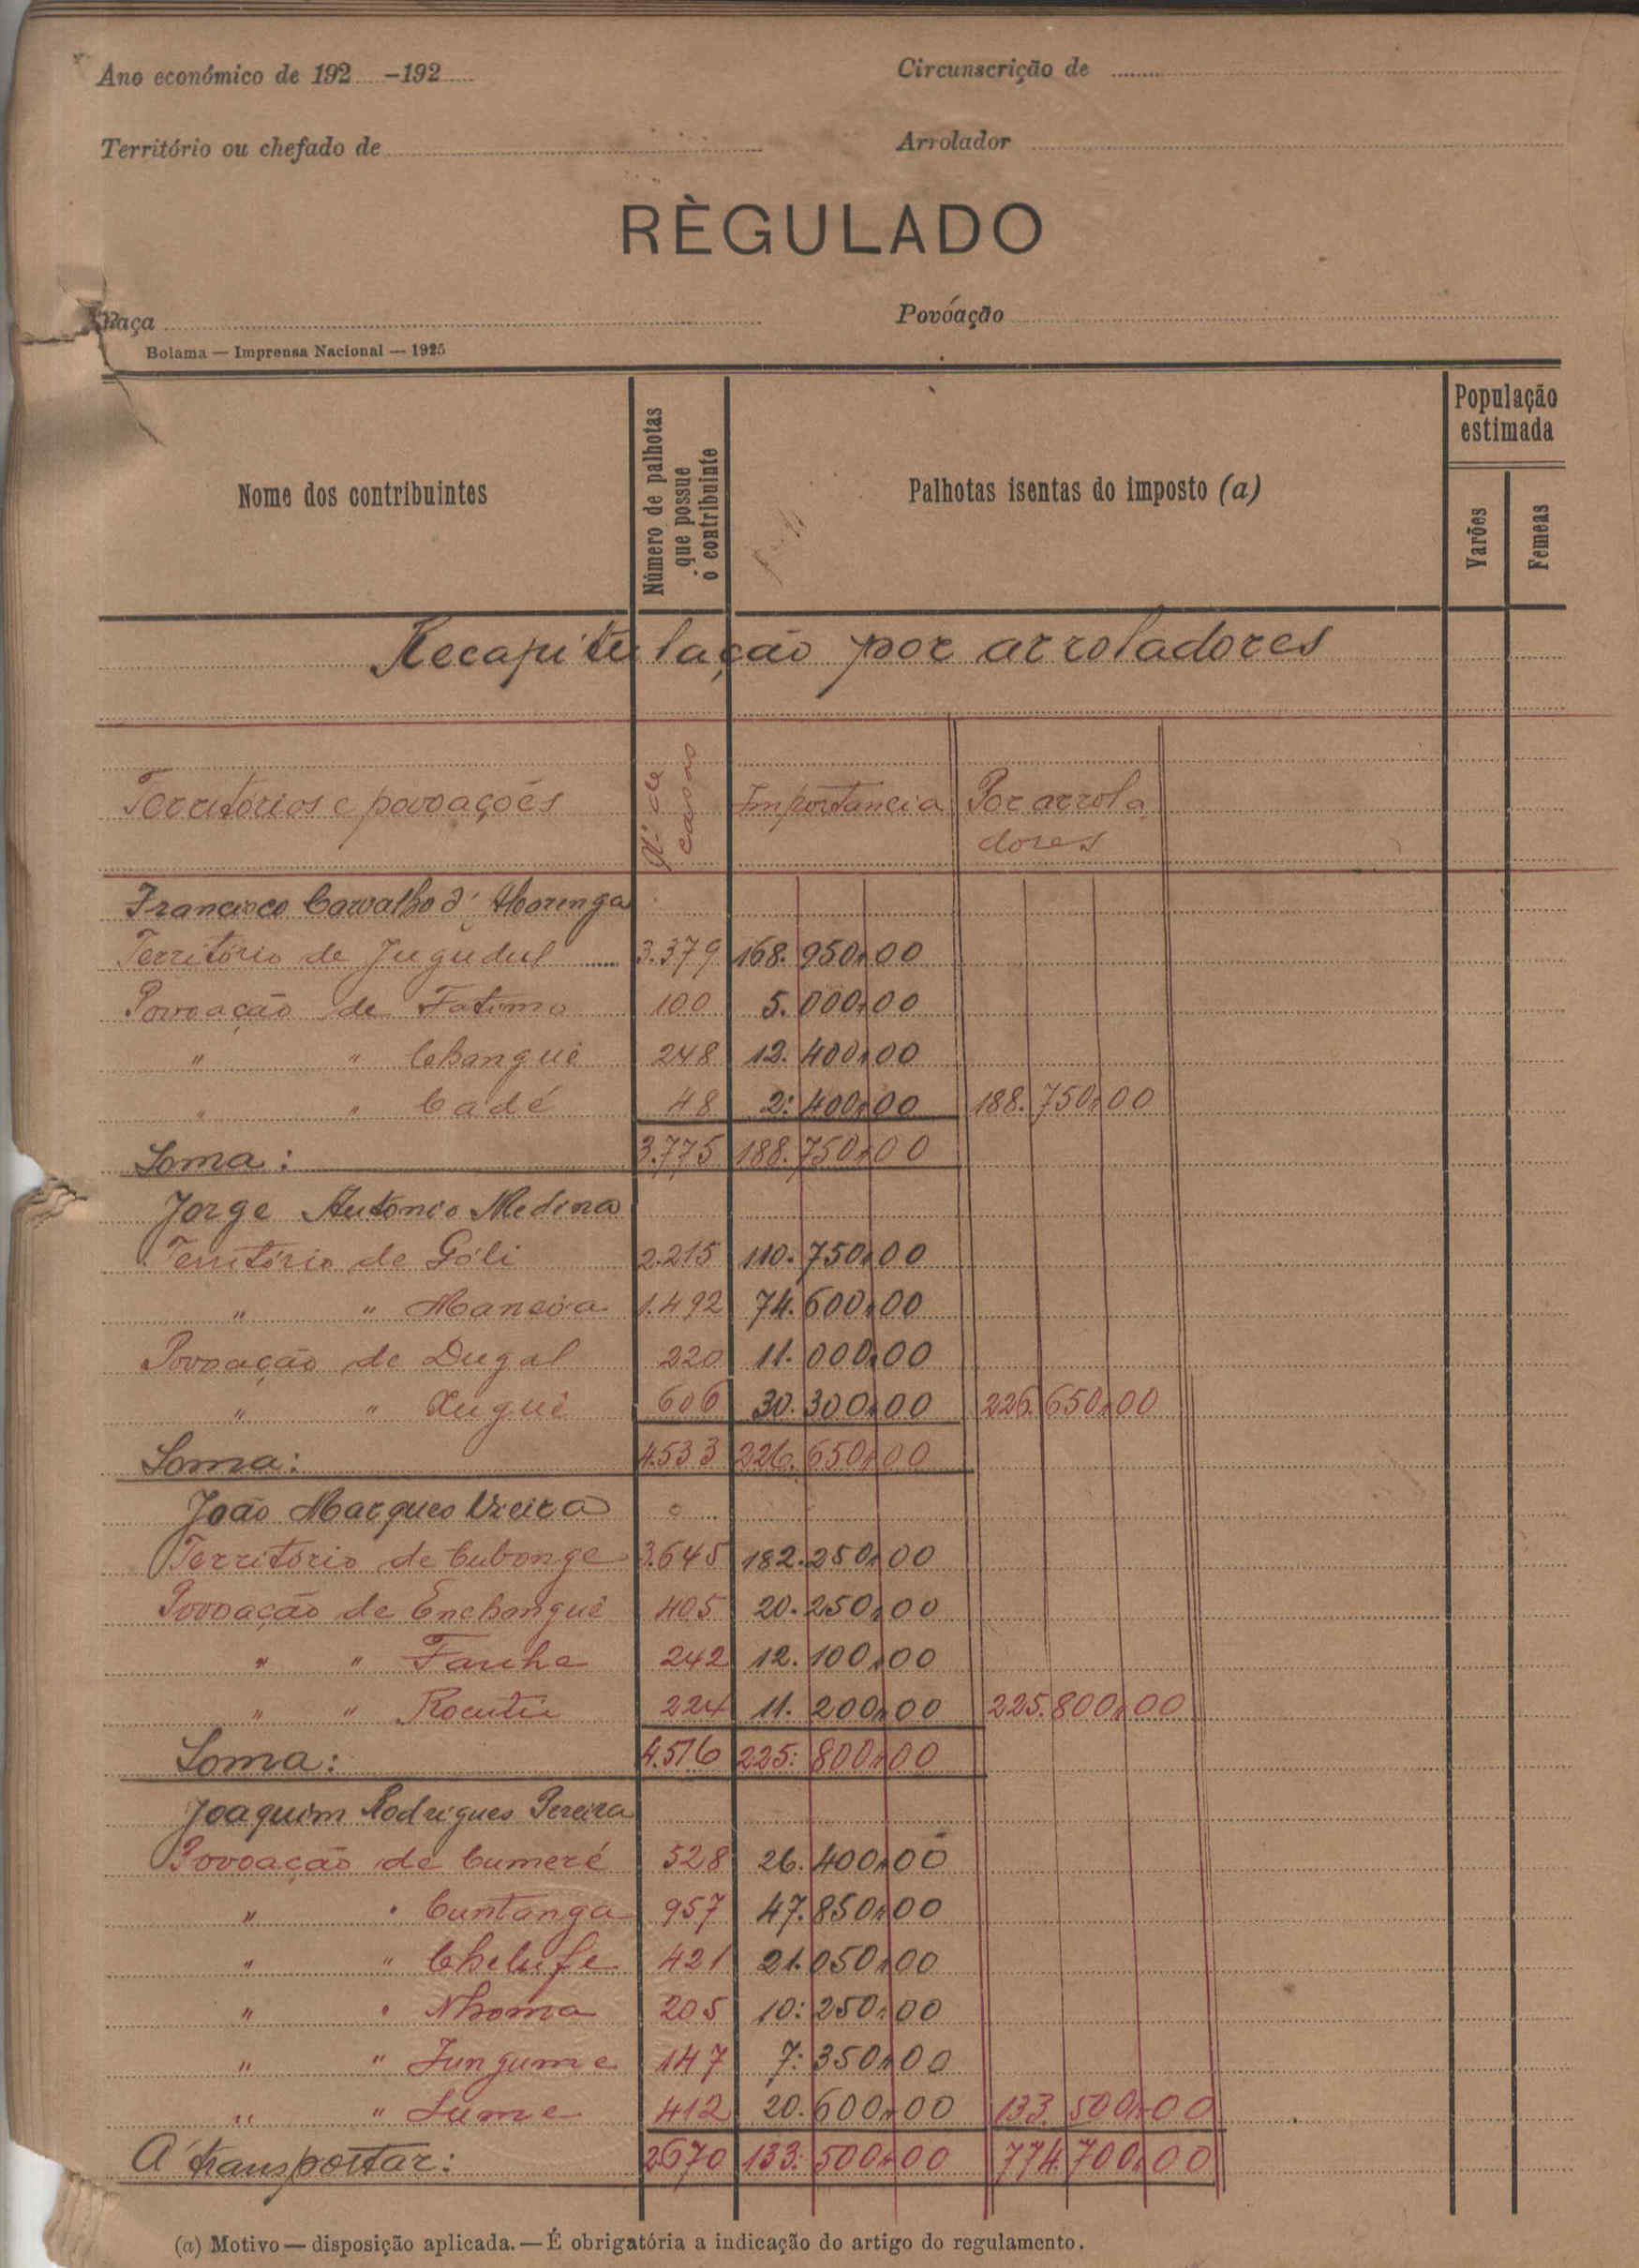 Ano económico de 192 -192
Circunscrição de
Território ou chefado de
Arrolador
RÈGULADO
Raça
Povoação
Bolama — Imprensa Nacional — 1925
Nome dos contribuintes
Número de palhotas que possue o contribuinte
Palhotas isentas do imposto (a)
População estimada
Varões
Femeas
Recapitulação por arroladores
Territórios e povoações
Nº de casas
Importancia
Por arrola
dores
Francisco Carvalho d'Alvarenga
Território de Jugudul 3.379 168.950,00
Povoação de Fatima 100 5.000,00
" " Changue 248 12.400,00
" " Cadé 48 2:400,00 188.750,00
Soma: 3.775 188.750,00
Jorge Antonio Medina
Território de Góli 2.215 110.750,00
" " Mansôa 1.492 74.600,00
Povoação de Dugal 220 11.000,00
" " Xuguê 606 30.300,00 226.650,00
Soma: 4.533 226.650,00
João Marques Vieira
Território de Cubonge 3.645 182.250,00
Povoação de Enchanguê 405 20.250,00
" " Fanhe 242 12.100,00
" " Rocutú 224 11.200,00 225.800,00
Soma: 4.516 225:800,00
Joaquim Rodrigues Pereira
Povoação de Cumeré 528 26.400,00
" " Cuntanga 957 47.850,00
" " Chelufe 421 21.050,00
" " Nhoma 205 10:250,00
" " Jungume 147 7:350,00
" " Lume 412 20.600,00 133.500,00
A transportar: 2670 133:500,00 774.700,00
(a) Motivo — disposição aplicada. — É obrigatória a indicação do artigo do regulamento.